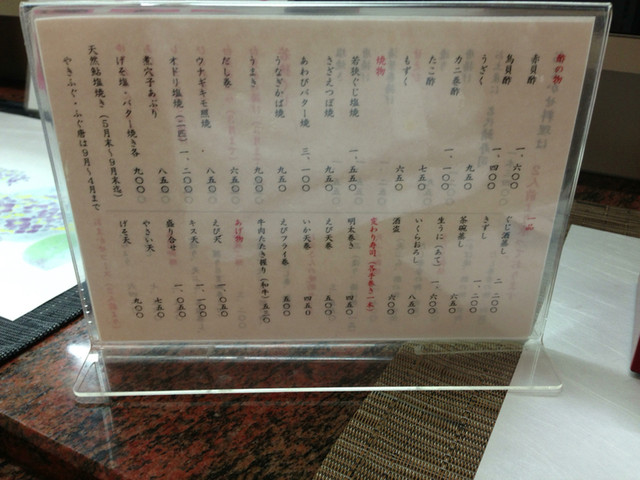 酢の物
赤貝酢 一、六〇〇
鳥貝酢 一、四〇〇
うざく 九五〇
カニ酢 一、一〇〇
たこ酢 七五〇
もずく 六五〇
焼物
若狭ぐじ塩焼 一、五〇〇
さざえつぼ焼 九五〇
あわびバター焼 三、一〇〇
うなぎかば焼 九五〇
うまき 九〇〇
だし巻 六五〇
ウナギキモ焼 八五〇
オドリ塩焼(二匹) 一、二〇〇
煮穴子あぶり 八五〇
げそ塩・バター焼き各 九〇〇
天然鮎塩焼き(5月末〜9月末迄)
やきふぐ・ふぐ唐は9月〜4月まで
一品
ぐじ酒蒸し 二、二〇〇
きずし 一、二〇〇
茶碗蒸し 六五〇
生うに(あて) 一、六〇〇
いくらおろし 八五〇
酒盗 六〇〇
変わり寿司(各手巻き一本)
明太巻き 四五〇
えび天巻 五〇〇
いか天巻 四五〇
えびフライ巻 五〇〇
牛肉たたき握り(和牛)五五〇
あげ物
えび天 一、〇五〇
キス天 一、一〇〇
盛り合せ 一、〇五〇
やさい天 七五〇
げそ天 九〇〇